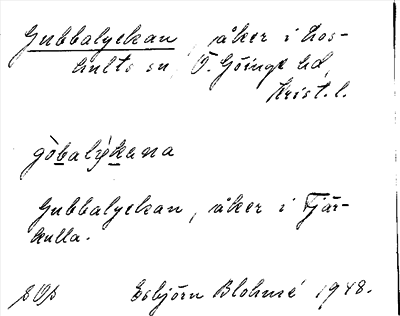 Gubbalyckan, åker i Los-
hults sn, Ö. Göinge hd,
Krist. l.
gòbalýkana
Gubbalyckan, åker i Tjär-
kulla.
Esbjörn Blohmé 1948.